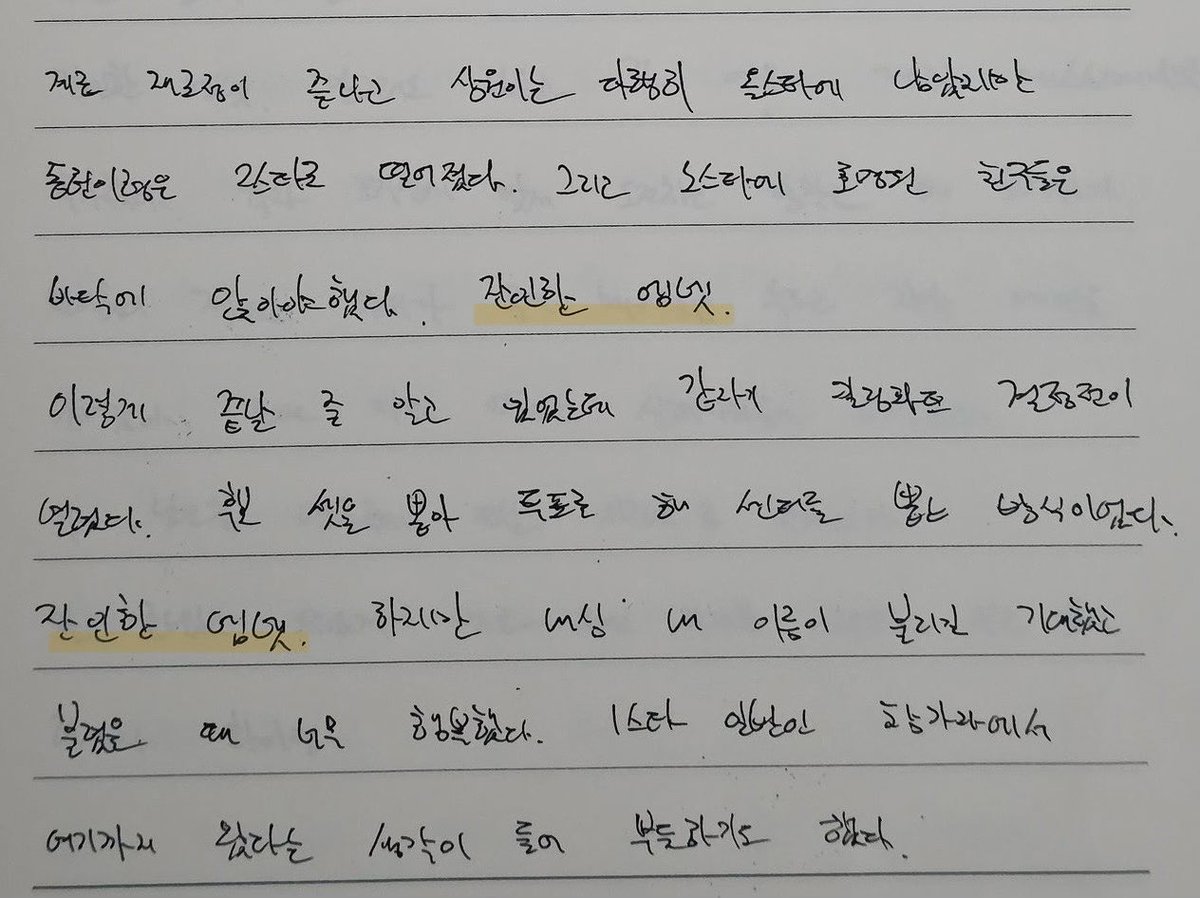 재조정이 끝나고 상원이는 다행히 올스타에 남았지만
동현이형은 2스타로 떨어졌다. 그리고 노스타에 호명된 친구들은
바닥에 앉아야 했다. 잔인한 엠넷.
이렇게 끝날 줄 알고 있었는데 갑자기 킬링파트 결정전이
열렸다. 후보 셋을 뽑아 투표로 해 센터를 뽑는 방식이었다.
잔인한 엠넷. 하지만 내심 내 이름이 불리길 기대했고
불렸을 때 너무 행복했다. 1스타 일반인 참가자에서
여기까지 왔다는 생각이 들어 뿌듯하기도 했다.